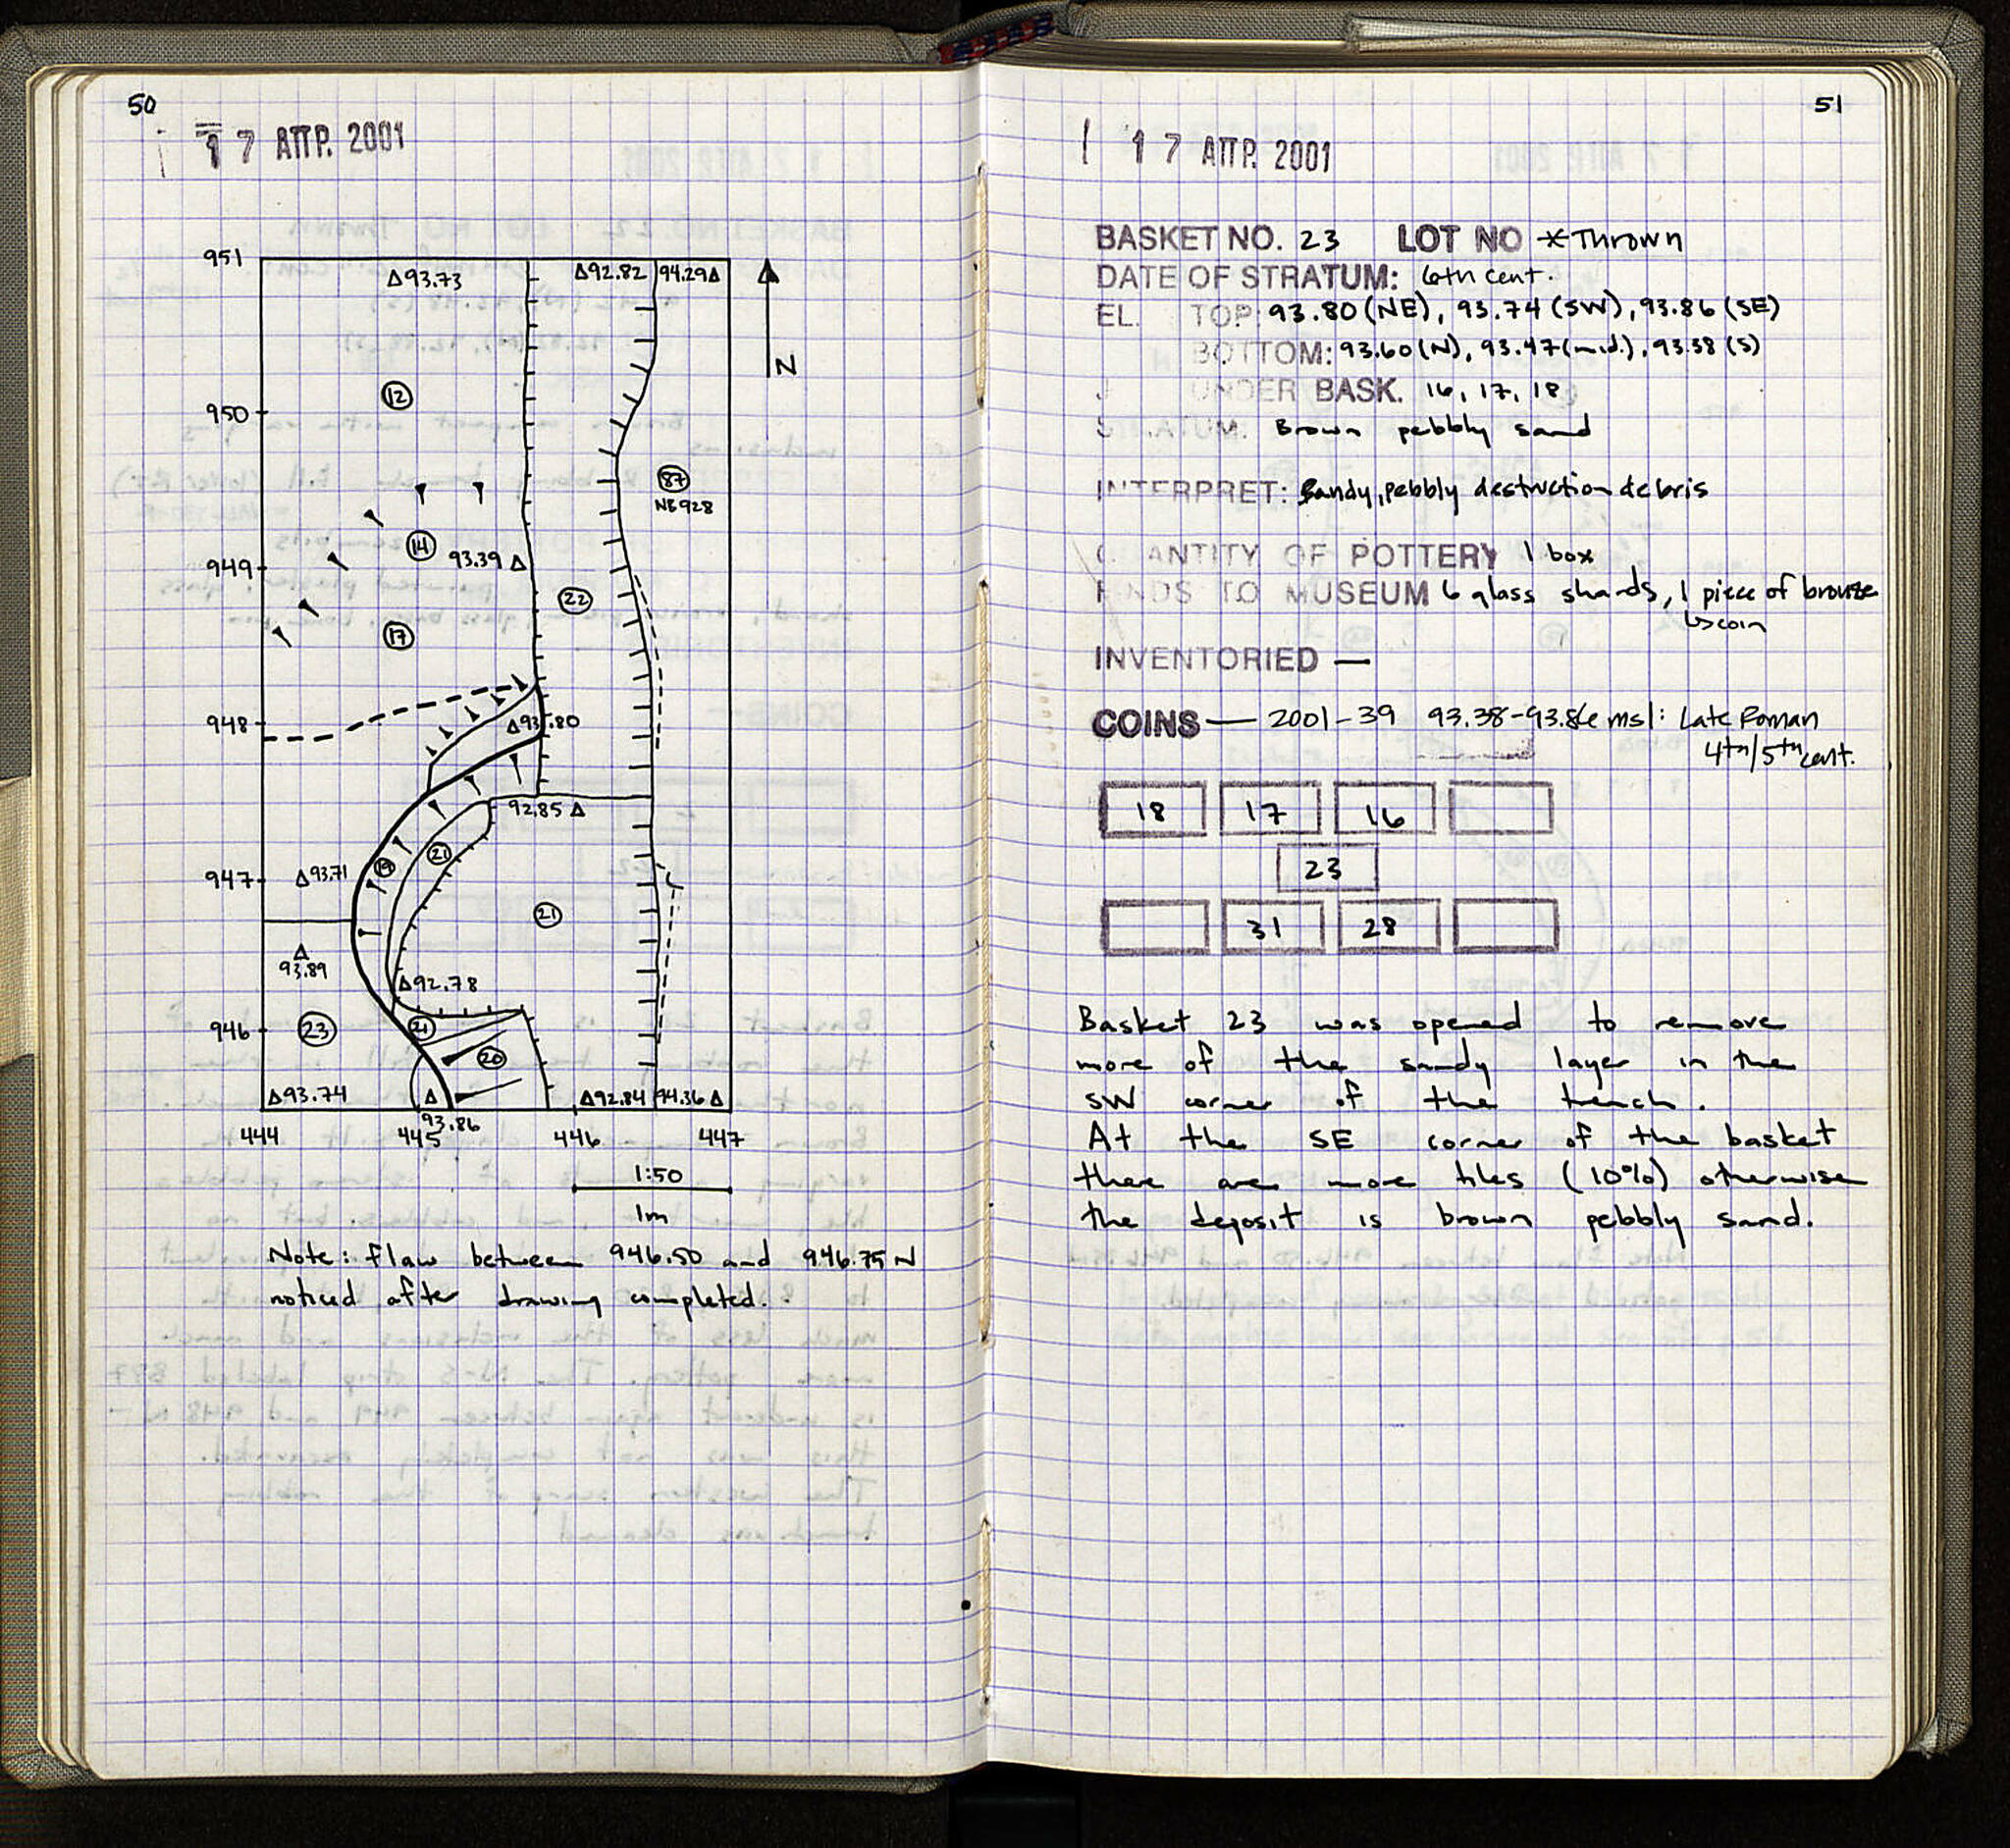 50
17 ΑΠΡ. 2001
951
Δ93.73
Δ92.82
94.29Δ
N
12
950
87
NB928
14
93.39 Δ
949
22
17
948
Δ93.80
92.85 Δ
21
19
947
Δ93.71
21
Δ
93.89
Δ92.78
946
23
21
20
Δ93.74
Δ
93.86
Δ92.84
94.36 Δ
444
445
446
447
1:50
1m
Note: flaw between 946.50 and 946.75 N
noticed after drawing completed.
51
17 ΑΠΡ. 2001
BASKET NO. 23 LOT NO *Thrown
DATE OF STRATUM: 6th cent.
EL. TOP: 93.80 (NE), 93.74 (SW), 93.86 (SE)
BOTTOM: 93.60 (N), 93.47 (mid.), 93.38 (S)
UNDER BASK. 16, 17, 18
STRATUM. Brown pebbly sand
INTERPRET: Sandy, pebbly destruction debris
QUANTITY OF POTTERY 1 box
FINDS TO MUSEUM 6 glass shards, 1 piece of bronze
↳coin
INVENTORIED —
COINS — 2001-39 93.38-93.86 msl: Late Roman
4th/5th cent.
18 17 16
23
31 28
Basket 23 was opened to remove
more of the sandy layer in the
SW corner of the trench.
At the SE corner of the basket
there are more tiles (10%) otherwise
the deposit is brown pebbly sand.